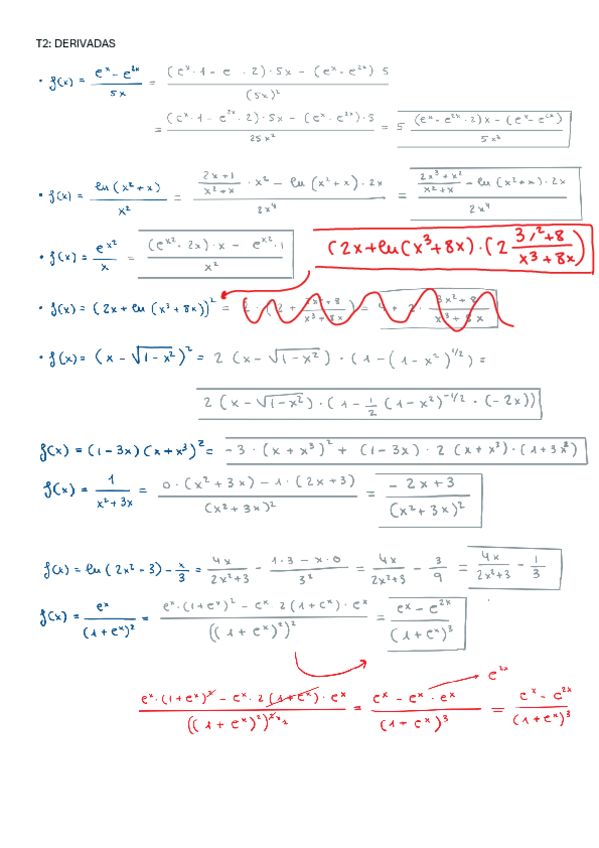 T2: DERIVADAS
• f(x) = (eˣ − e²ˣ)/(5x) = ((eˣ·1 − e · 2)·5x − (eˣ − e²ˣ) 5)/(5x)²
= ((eˣ·1 − e²ˣ·2)·5x − (eˣ·e²ˣ)·5)/(25x²) = 5 ((eˣ − e²ˣ·2)x − (eˣ − e²ˣ))/(5x²)
• f(x) = ln(x²+x)/x² = ((2x+1)/(x²+x) · x² − ln(x²+x)·2x)/(2x⁴) = ((2x³+x²)/(x²+x) − ln(x²+x)·2x)/(2x⁴)
• f(x) = e^(x²)/x = ((e^(x²)·2x)·x − e^(x²)·1)/x²
(2x+ln(x³+8x)·(2 (3x²+8)/(x³+8x))
• f(x) = (2x + ln(x³+8x))² = 2 · (2 + (3x²+8)/(x³+8x)) = 4 + 2· (3x²+8)/(x³+8x)
• f(x) = (x − √(1−x²))² = 2 (x − √(1−x²)) · (1 − (1−x²)^(1/2)) =
2 (x − √(1−x²)) · (1 − 1/2 (1−x²)^(−1/2) · (−2x))
f(x) = (1−3x)(x+x³)² = −3·(x+x³)² + (1−3x)·2(x+x³)·(1+3x²)
f(x) = 1/(x²+3x) = (0·(x²+3x) − 1·(2x+3))/(x²+3x)² = (−2x+3)/(x²+3x)²
f(x) = ln(2x²−3) − x/3 = 4x/(2x²+3) − (1·3 − x·0)/3² = 4x/(2x²+3) − 3/9 = 4x/(2x²+3) − 1/3
f(x) = eˣ/(1+eˣ)² = (eˣ·(1+eˣ)² − eˣ·2(1+eˣ)·eˣ)/((1+eˣ)²)² = (eˣ − e²ˣ)/(1+eˣ)³
e²ˣ
(eˣ·(1+eˣ)² − eˣ·2(1+eˣ)·eˣ)/((1+eˣ)²)² = (eˣ − eˣ·eˣ)/(1−eˣ)³ = (eˣ − e²ˣ)/(1+eˣ)³